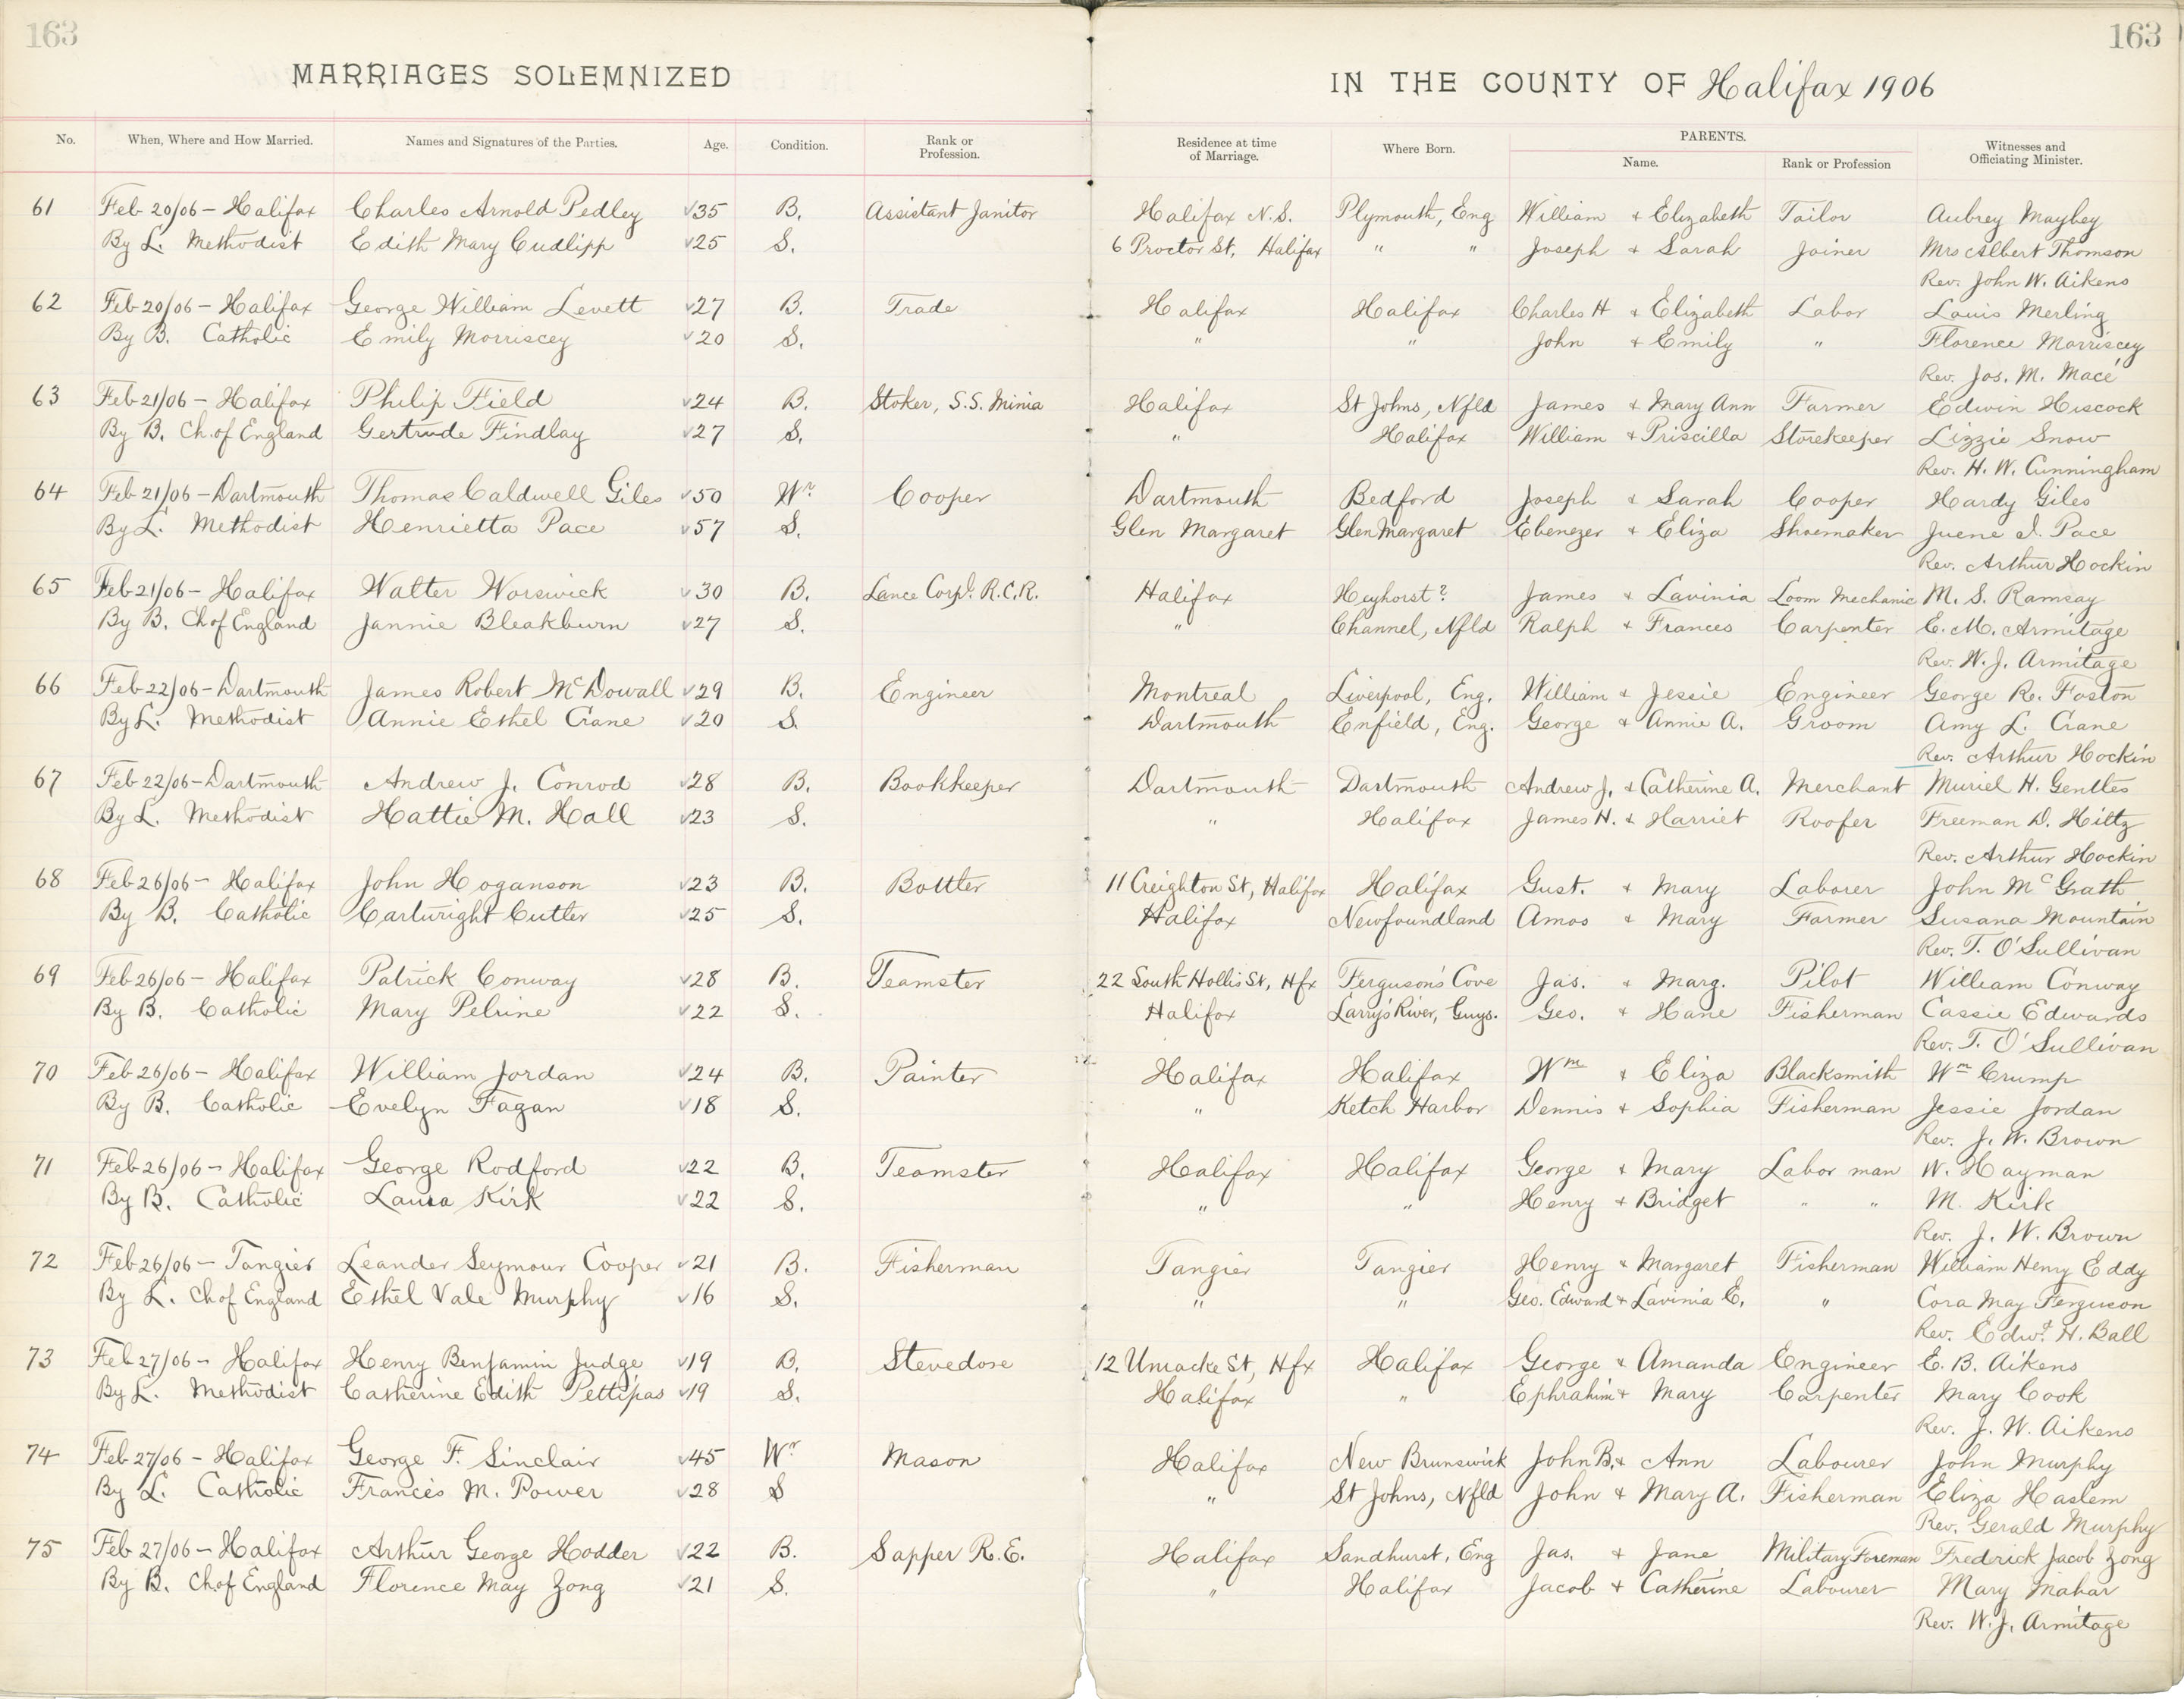 163 163
MARRIAGES SOLEMNIZED IN THE COUNTY OF Halifax 1906
No. When, Where and How Married. Names and Signatures of the Parties. Age. Condition. Rank or Profession. Residence at time of Marriage. Where Born. PARENTS. Name. Rank or Profession Witnesses and Officiating Minister.
61 Feb 20/06 – Halifax Charles Arnold Pedley 35 B. Assistant Janitor Halifax N.S. Plymouth, Eng William + Elizabeth Tailor Aubrey Maybey
By L. Methodist Edith Mary Cudlipp 25 S. 6 Proctor St, Halifax " " Joseph + Sarah Joiner Mrs Albert Thomson
Rev. John W. Aikens
62 Feb 20/06 – Halifax George William Levett 27 B. Trade Halifax Halifax Charles H + Elizabeth Labor Louis Merling
By B. Catholic Emily Morriscey 20 S. " " John + Emily " Florence Morriscey
Rev. Jos. M. Macé
63 Feb 21/06 – Halifax Philip Field 24 B. Stoker, S.S. Minia Halifax St Johns, Nfld James + Mary Ann Farmer Edwin Hiscock
By B. Ch. of England Gertrude Findlay 27 S. " Halifax William + Priscilla Storekeeper Lizzie Snow
Rev. H. W. Cunningham
64 Feb 21/06 – Dartmouth Thomas Caldwell Giles 50 Wr Cooper Dartmouth Bedford Joseph + Sarah Cooper Hardy Giles
By L. Methodist Henrietta Pace 57 S. Glen Margaret Glen Margaret Ebenezer + Eliza Shoemaker Juene I. Pace
Rev. Arthur Hockin
65 Feb 21/06 – Halifax Walter Worswick 30 B. Lance Corpl. R.C.R. Halifax Heyhorst? James + Lavinia Loom Mechanic M. S. Ramsay
By B. Ch of England Jannie Bleakburn 27 S. " Channel, Nfld Ralph + Frances Carpenter E. M. Armitage
Rev. W. J. Armitage
66 Feb 22/06 – Dartmouth James Robert McDowall 29 B. Engineer Montreal Liverpool, Eng. William + Jessie Engineer George R. Foston
By L. Methodist Annie Ethel Crane 20 S. Dartmouth Enfield, Eng. George + Annie A. Groom Amy L. Crane
Rev. Arthur Hockin
67 Feb 22/06 – Dartmouth Andrew J. Conrod 28 B. Bookkeeper Dartmouth Dartmouth Andrew J. + Catherine A. Merchant Muriel H. Genttes
By L. Methodist Hattie M. Hall 23 S. " Halifax James H. + Harriet Roofer Freeman D. Hiltz
Rev. Arthur Hockin
68 Feb 26/06 – Halifax John Hoganson 23 B. Bottler 11 Creighton St, Halifax Halifax Gust. + Mary Laborer John McGrath
By B. Catholic Cartwright Cutler 25 S. Halifax Newfoundland Amos + Mary Farmer Susana Mountain
Rev. T. O'Sullivan
69 Feb 26/06 – Halifax Patrick Conway 28 B. Teamster 22 South Hollis St, Hfx Ferguson's Cove Jas. + Marg. Pilot William Conway
By B. Catholic Mary Pelrine 22 S. Halifax Larry's River, Guys. Geo. + Hane Fisherman Cassie Edwards
Rev. T. O'Sullivan
70 Feb 26/06 – Halifax William Jordan 24 B. Painter Halifax Halifax Wm + Eliza Blacksmith Wm Crump
By B. Catholic Evelyn Fagan 18 S. " Ketch Harbor Dennis + Sophia Fisherman Jessie Jordan
Rev. J. W. Brown
71 Feb 26/06 – Halifax George Rodford 22 B. Teamster Halifax Halifax George + Mary Labor man W. Hayman
By B. Catholic Laura Kirk 22 S. " " Henry + Bridget " " M. Kirk
Rev. J. W. Brown
72 Feb 26/06 – Tangier Leander Seymour Cooper 21 B. Fisherman Tangier Tangier Henry + Margaret Fisherman William Henry Eddy
By L. Ch of England Ethel Vale Murphy 16 S. " " Geo. Edward + Lavinia E. " Cora May Ferguson
Rev. Edwd. H. Ball
73 Feb 27/06 – Halifax Henry Benjamin Judge 19 B. Stevedore 12 Uniacke St, Hfx Halifax George + Amanda Engineer E. B. Aikens
By L. Methodist Catherine Edith Pettipas 19 S. Halifax " Ephrahim + Mary Carpenter Mary Cook
Rev. J. W. Aikens
74 Feb 27/06 – Halifax George F. Sinclair 45 Wr Mason Halifax New Brunswick John B. + Ann Labourer John Murphy
By L. Catholic Frances M. Power 28 S " St Johns, Nfld John + Mary A. Fisherman Eliza Haslem
Rev. Gerald Murphy
75 Feb 27/06 – Halifax Arthur George Hodder 22 B. Sapper R.E. Halifax Sandhurst, Eng Jas. + Jane Military Foreman Fredrick Jacob Zong
By B. Ch. of England Florence May Zong 21 S. " Halifax Jacob + Catherine Labourer Mary Mahar
Rev. W. J. Armitage